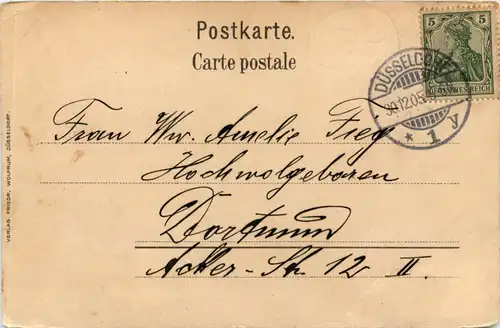 Postkarte.
Carte postale
5 5
DEUTSCHES REICH
DÜSSELDORF
30.12.05
* 1 y
Frau Ww. Amelie Fieg
Hochwolgeboren
Dortmund
Acker-Str. 12 II.
VERLAG FRIEDR. WOLFRUM, DÜSSELDORF.